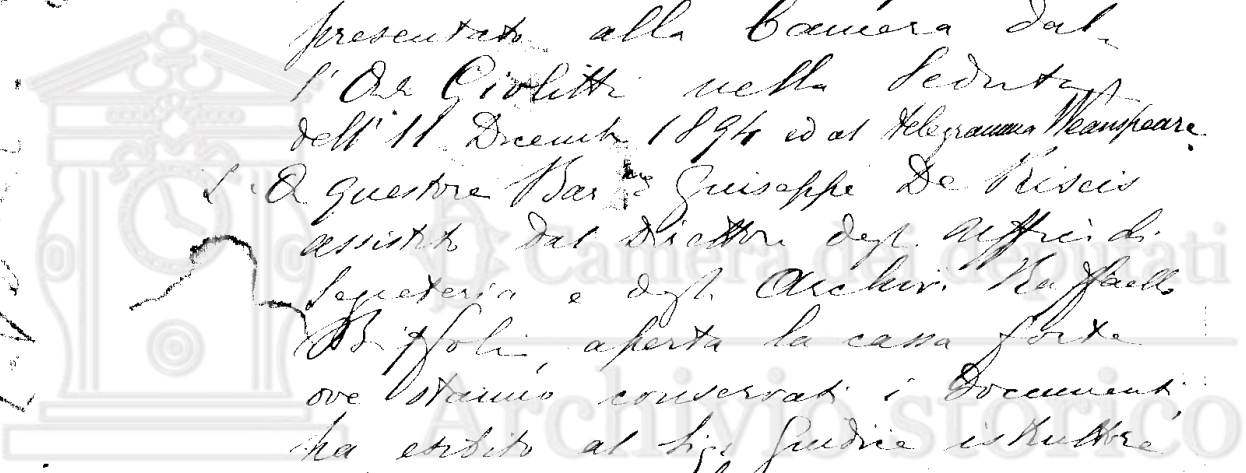 presentato alla Camera dal-
l'On Giolitti nella Seduta
dell' 11 Dicembre 1894 ed al telegramma Weanspeare.
L'On questore Barne Giuseppe De Riseis
assistito dal Direttore degli Uffici di
Segreteria e degli Archivi Raffaello
Biffoli, aperta la cassa forte
ove stanno conservati i Documenti,
ha esibito al Sigr Giudice istruttore
Camera dei deputati
Archivio storico